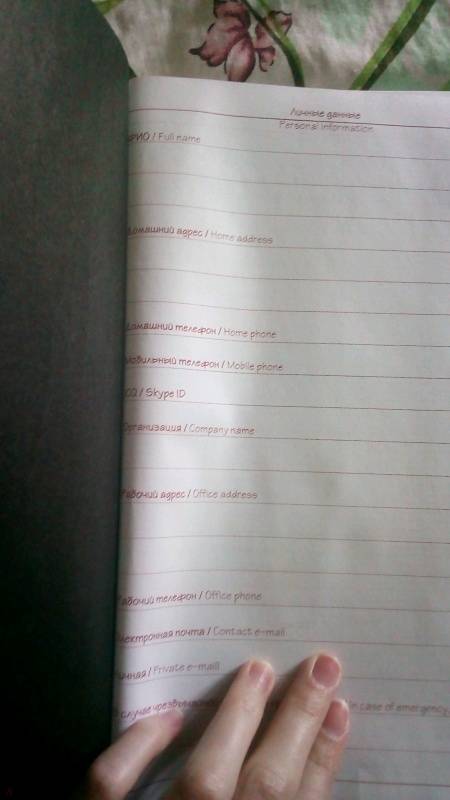 Личные данные
Personal information
ФИО / Full name
Домашний адрес / Home address
Домашний телефон / Home phone
Мобильный телефон / Mobile phone
ICQ / Skype ID
Организация / Company name
Рабочий адрес / Office address
Рабочий телефон / Office phone
Электронная почта / Contact e-mail
Личная / Private e-mail
В случае in case of emergency